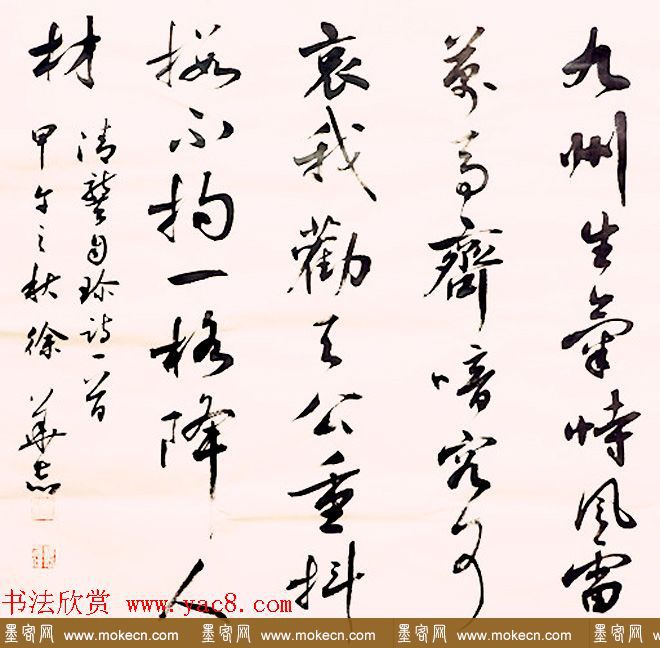 九州生氣恃風雷
萬馬齊喑究可
哀我勸天公重抖
擻不拘一格降人
材
清龔自珍詩一首
甲午之秋徐華志
书法欣赏 www.yac8.com
墨客网 www.mokecn.com 墨客网 www.mokecn.com 墨客网 www.mokecn.com 墨客网